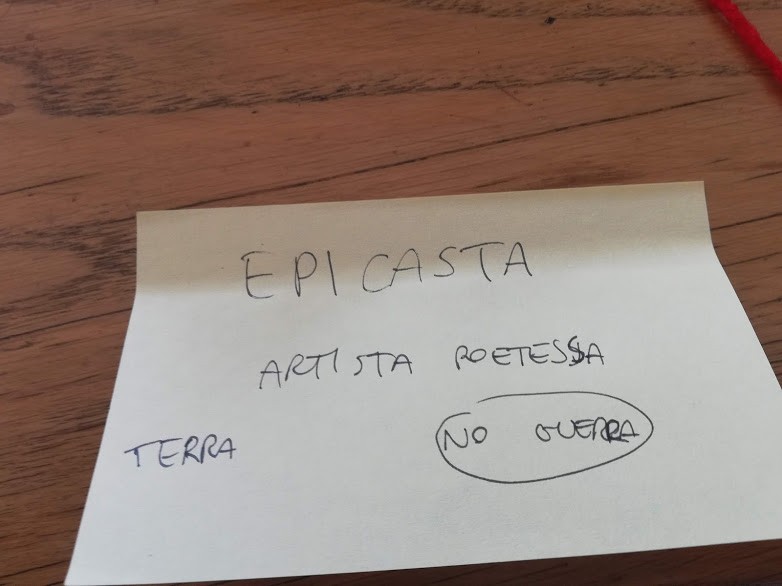 EPICASTA
ARTISTA POETESSA
TERRA NO GUERRA